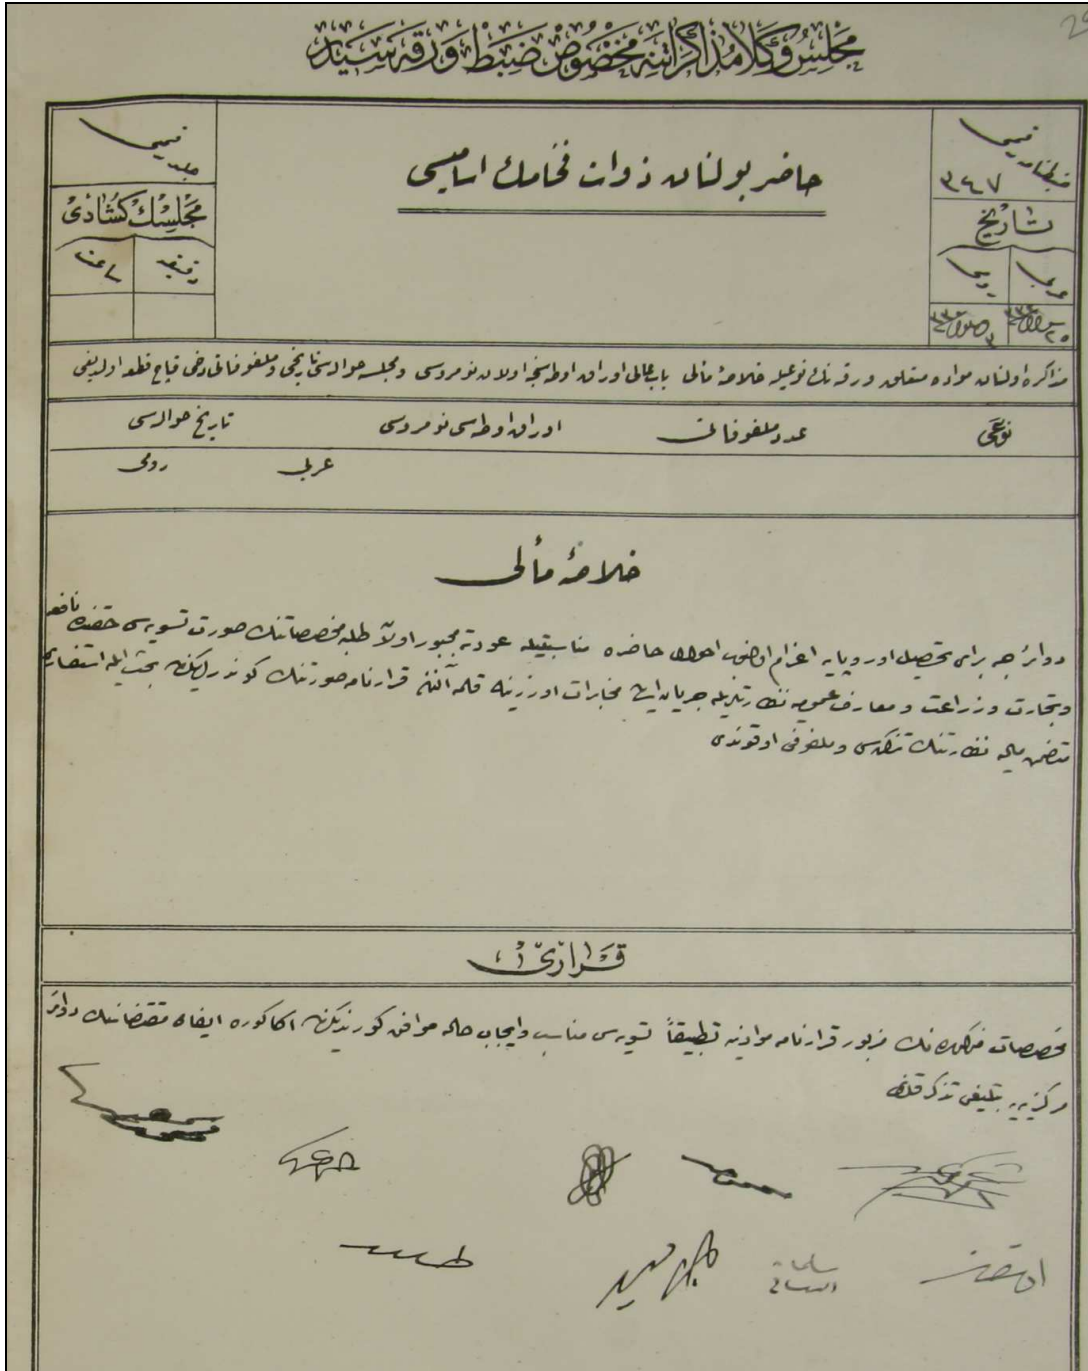 مجلس وكلا مذاكراتنه مخصوص ضبط ورقه سيدر
ضبطنامه نومروسى
٣٤٧
تاريخ
عربى
رومى
حاضر بولنان ذوات فخامك اساميسى
جلد نومروسى
مجلسك كشادى
دقيقه
ساعت
مذاكره اولنان مواده متعلق ورقه نك نوعيله خلاصۀ مآلى باب عالى اوراق اوطه سنجه اولان نومروسى ومجلسه حواله سى تاريخى وملفوفاتى دخى قاچ قطعه اولديغى
نوعى
عدد ملفوفاتى
اوراق اوطه سى نومروسى
تاريخ حواله سى
عربى
رومى
خلاصۀ مآلى
دوائرجه براى تحصيل اوروپايه اعزام اولنوب احوال حاضره مناسبتيله عودته مجبور اولان طلبه مخصصاتنك صورت تسويه سى حقنده نافعه
وتجارت وزراعت و معارف عموميه نظارتلريله جريان ايدن مخابرات اوزرينه قلمه آلنان قرارنامه صورتنك كوندرلديكندن بحث ايله استيضاحى
متضمن ماليه نظارتنك تذكره سى وملفوفى اوقوندى
قرارى
مخصصات مذكوره نك مزبور قرارنامه موادينه تطبيقاً تسويه سى مناسب وايجاب حاله موافق كورنديكندن اكا كوره ايفاى مقتضاسنك دوائر
مركزيه يه تبليغى تذكر قلندى
سليمان
البستانى